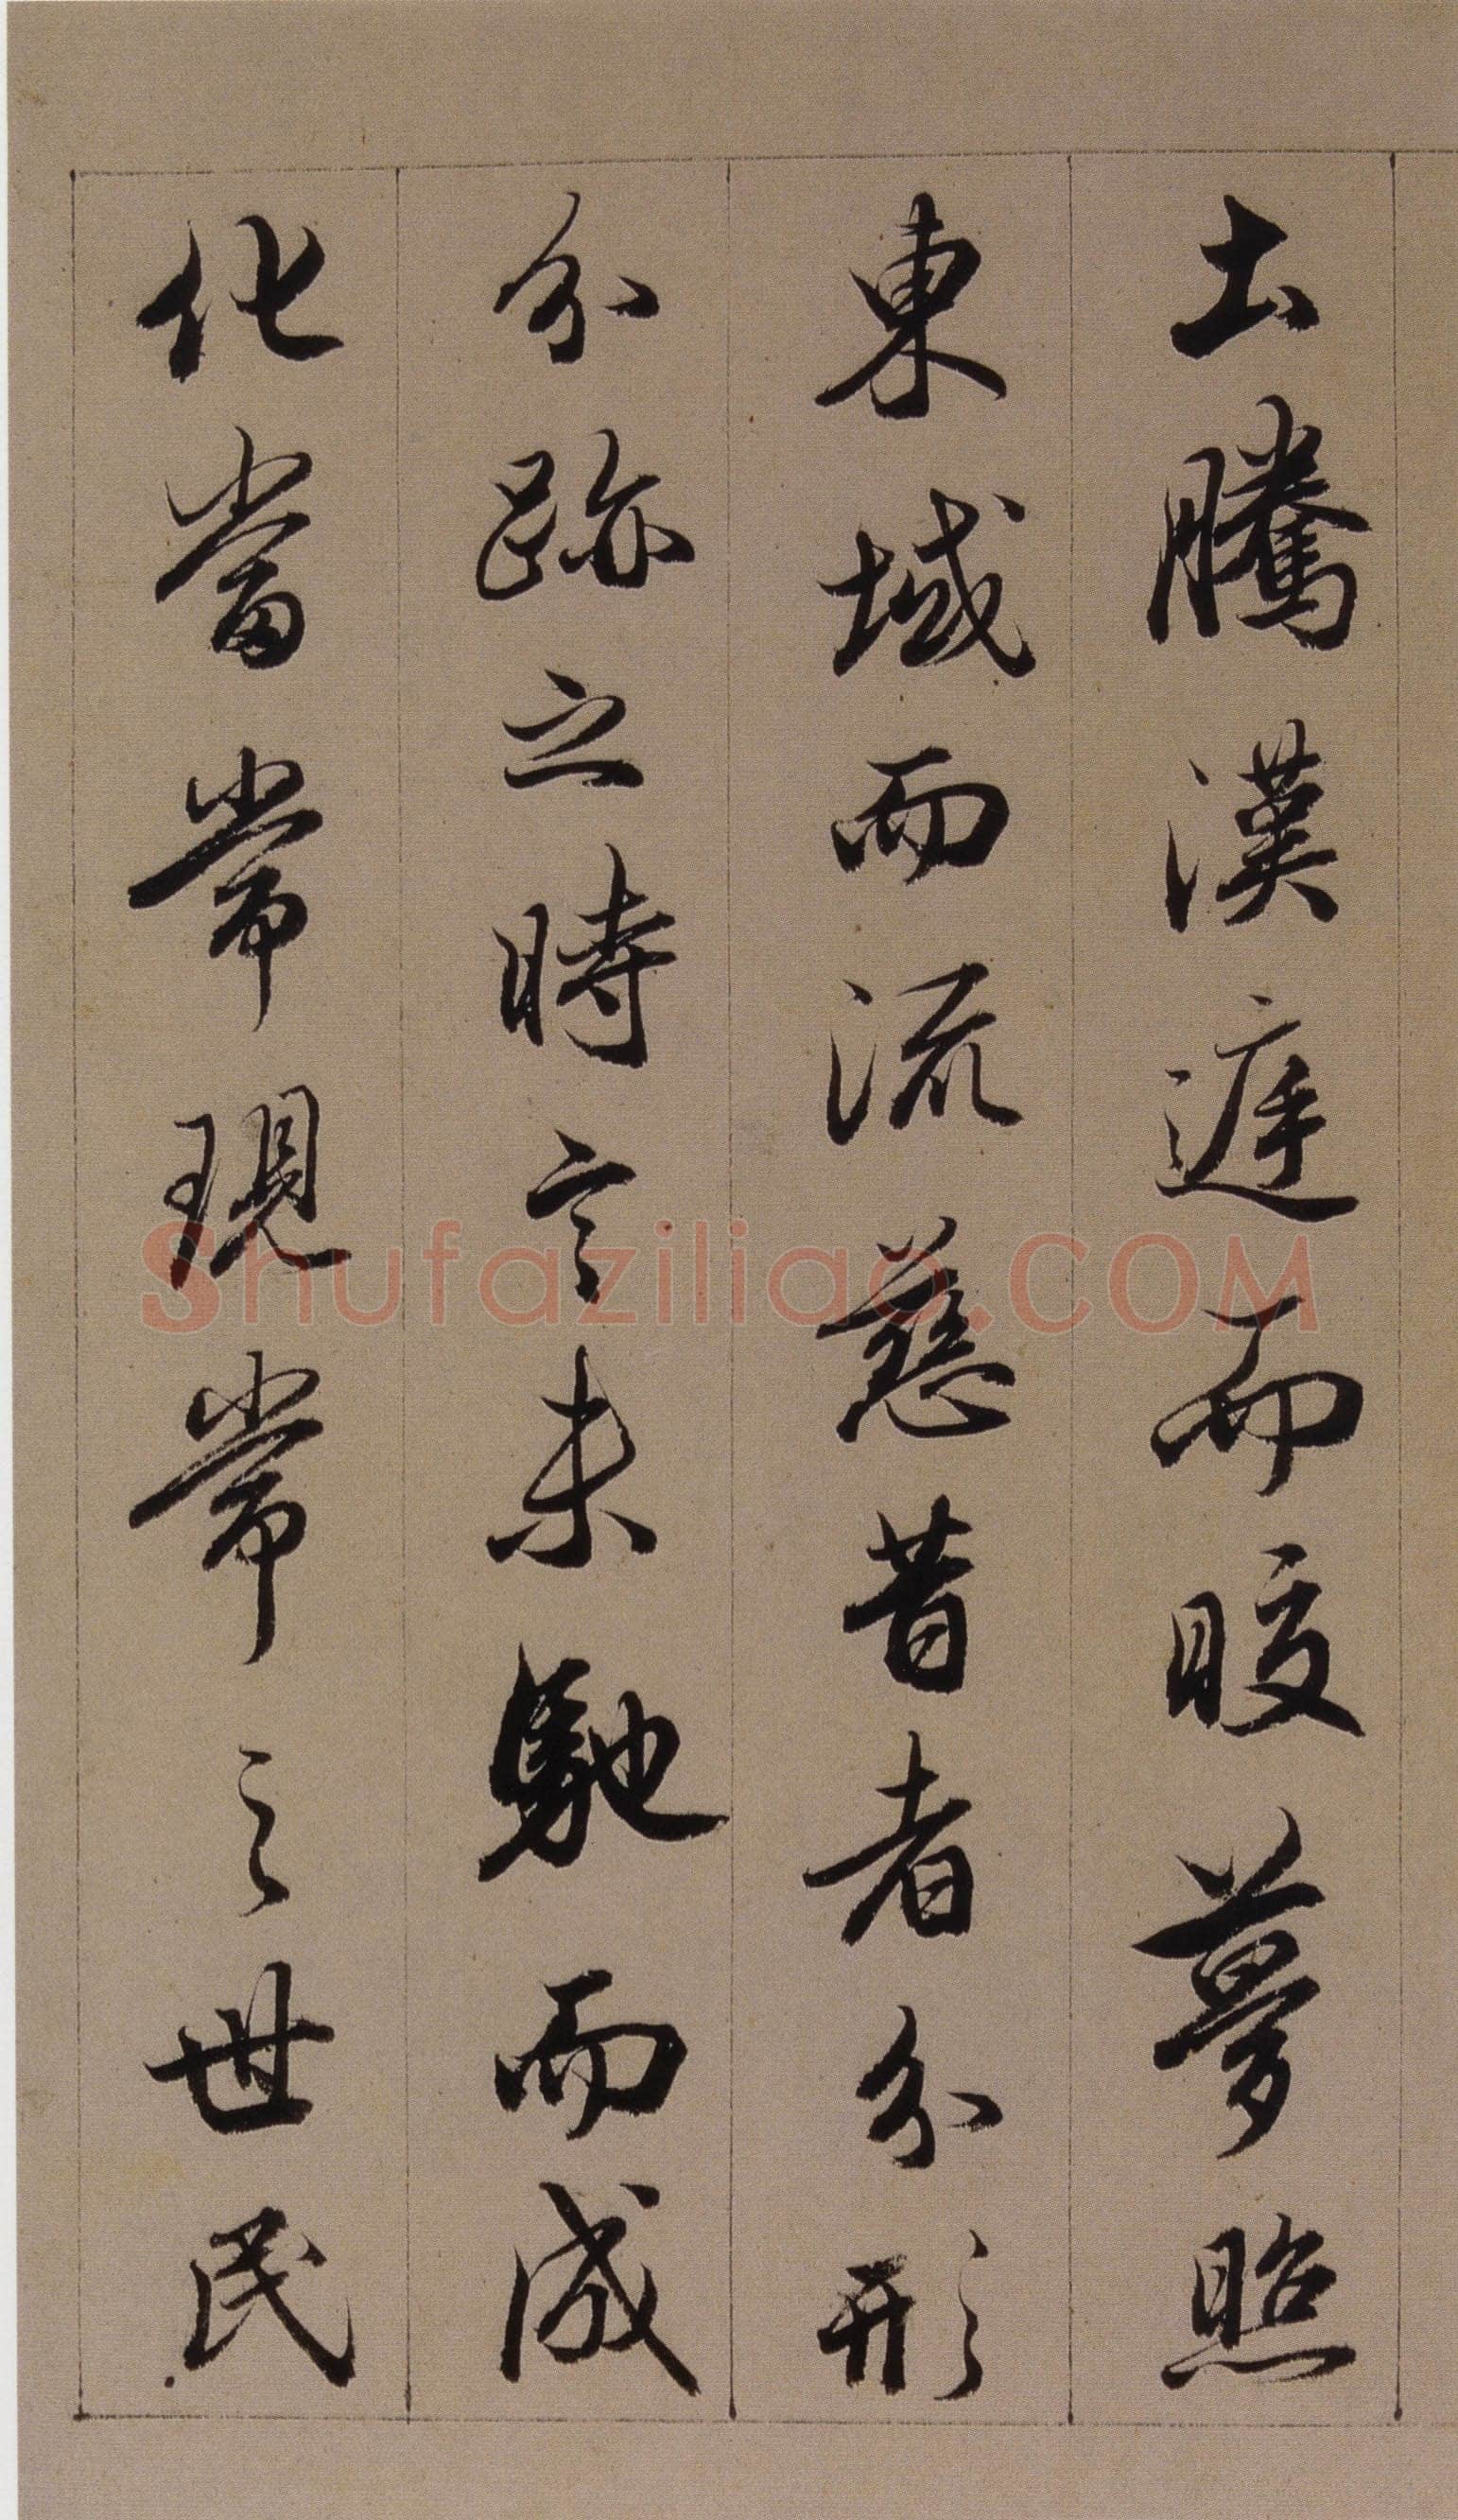 土騰漢庭而皎夢照
東域而流慈昔者分形
分跡之時言未馳而成
化當常現常之世民
Shufaziliao.COM